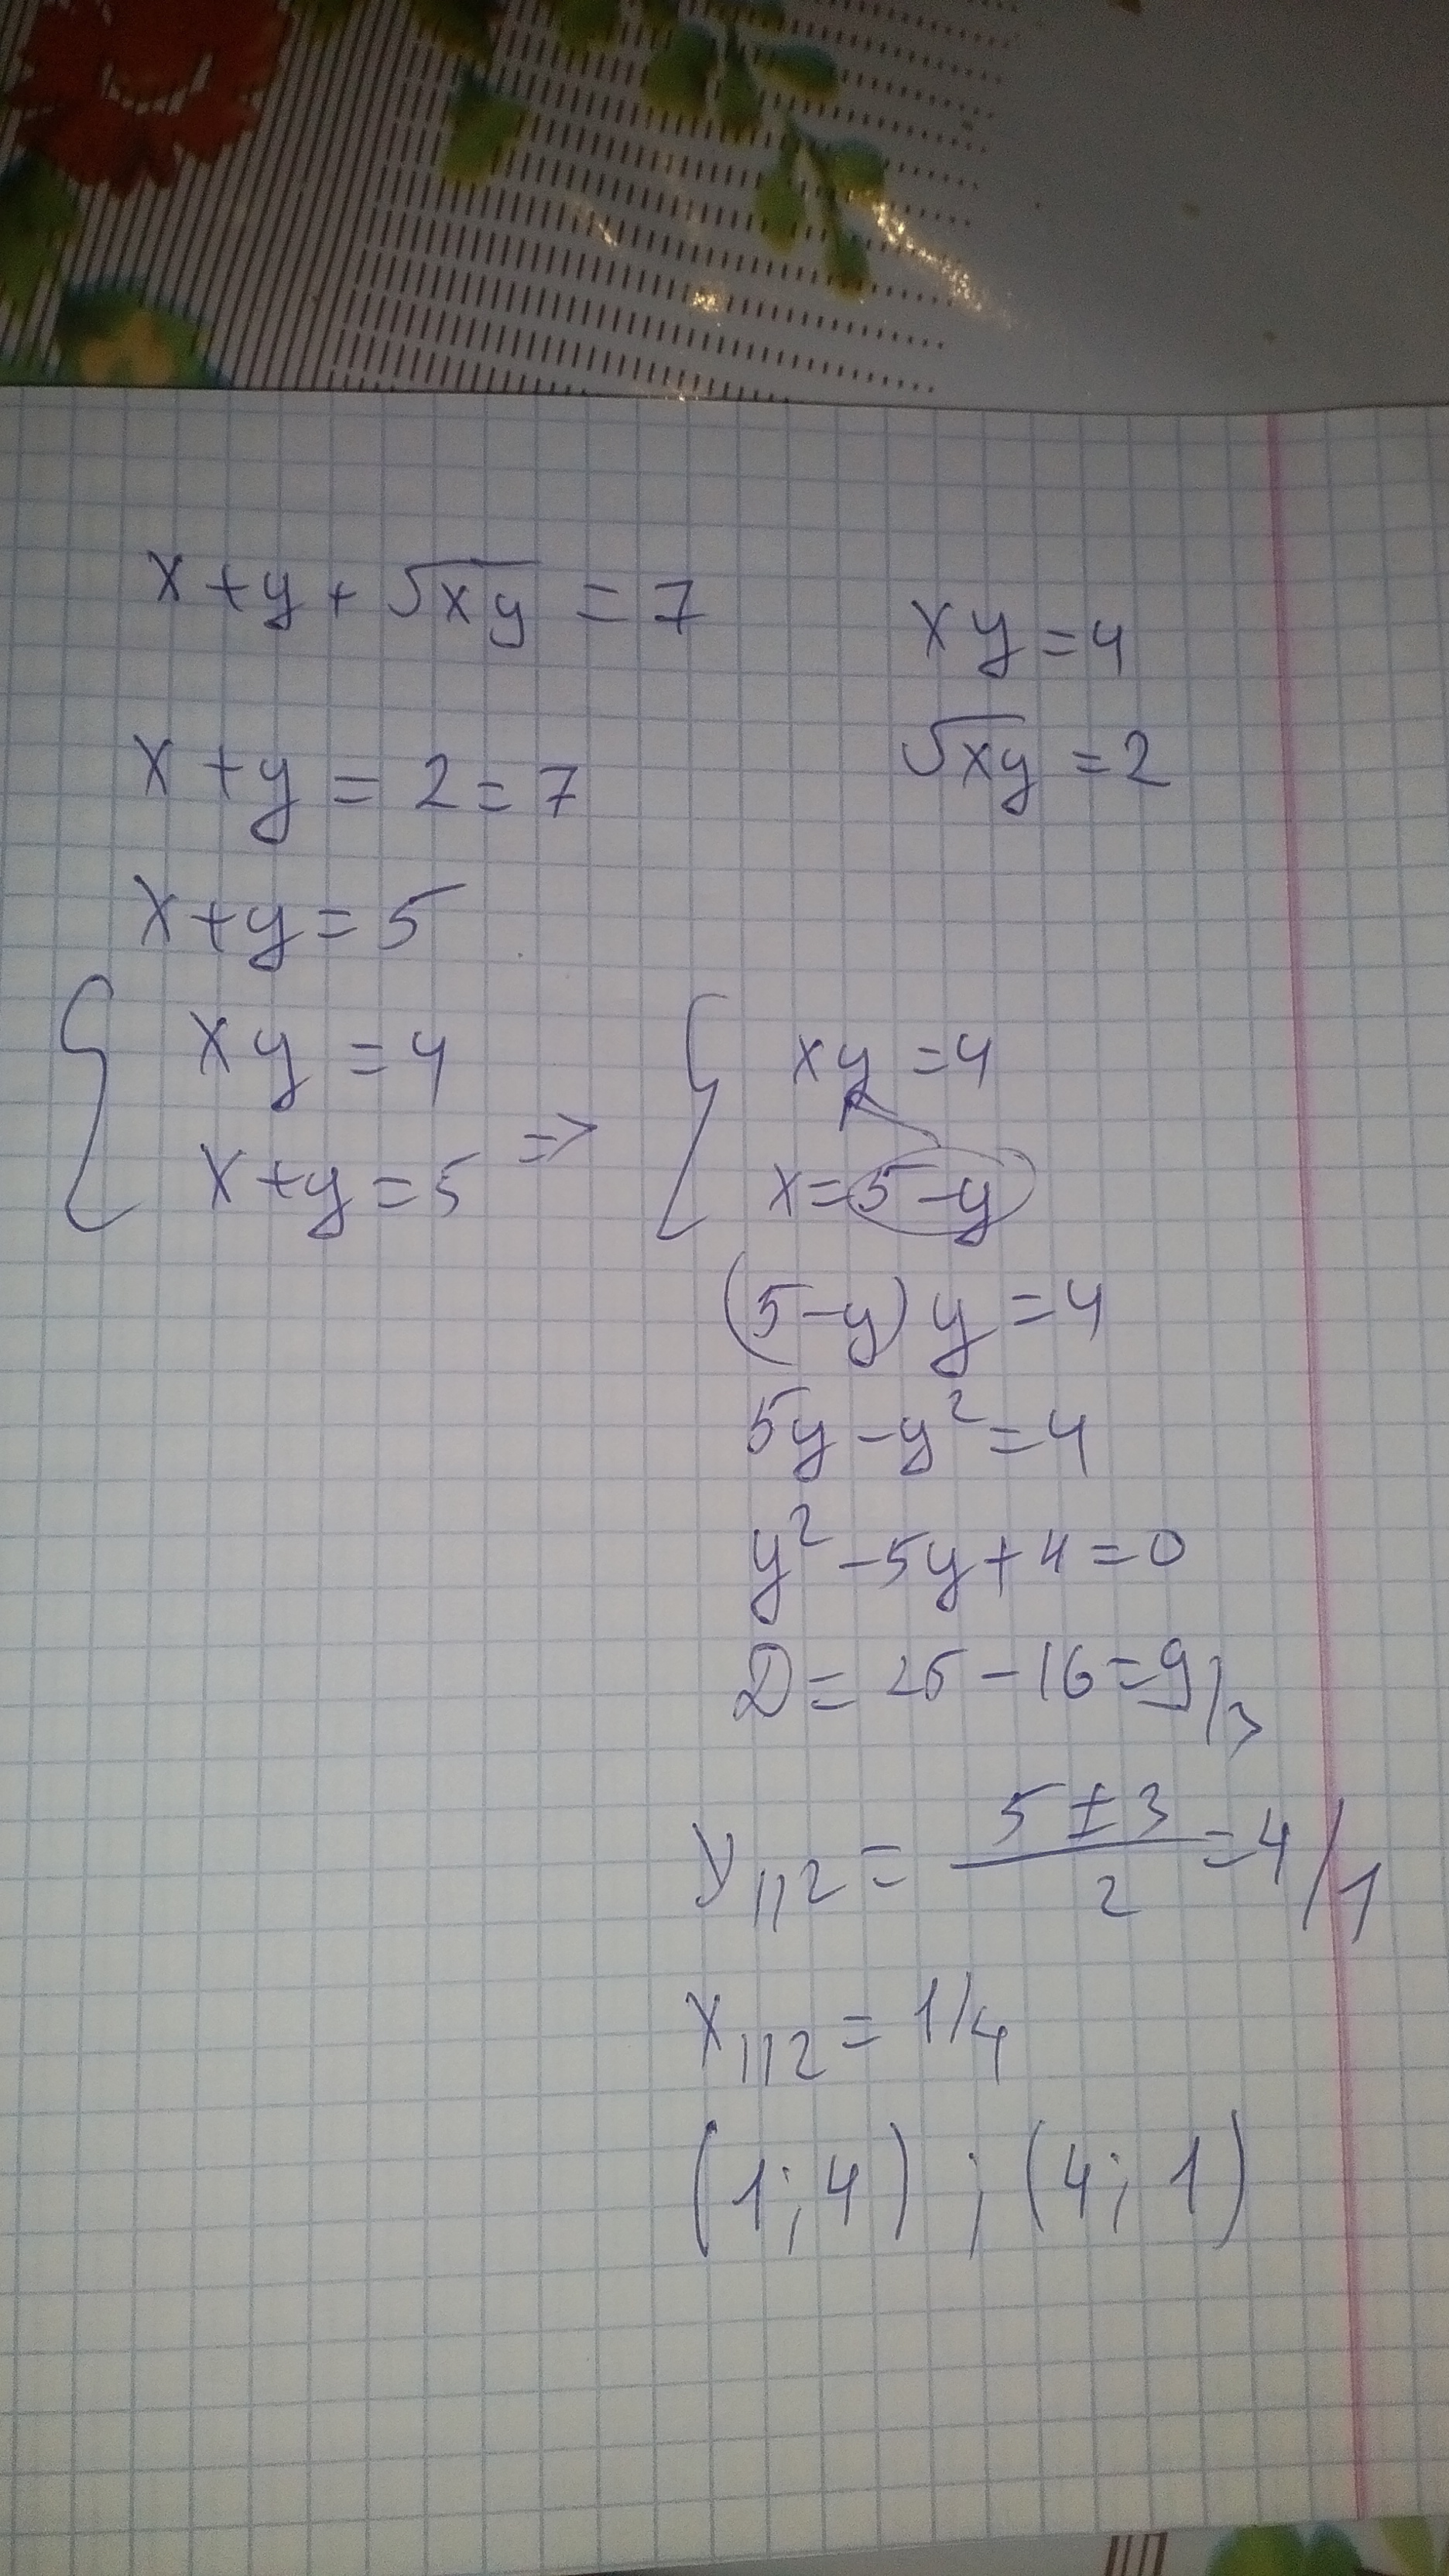 x+y+√xy = 7
xy=4
√xy = 2
x+y = 2 = 7
x+y = 5
{ xy = 4
x+y = 5 =>
{ xy = 4
x = 5-y
(5-y) y = 4
5y - y² = 4
y² - 5y + 4 = 0
D = 25 - 16 = 9/3
y1,2 = (5 ± 3)/2 = 4/1
x1,2 = 1/4
(1; 4) ; (4; 1)